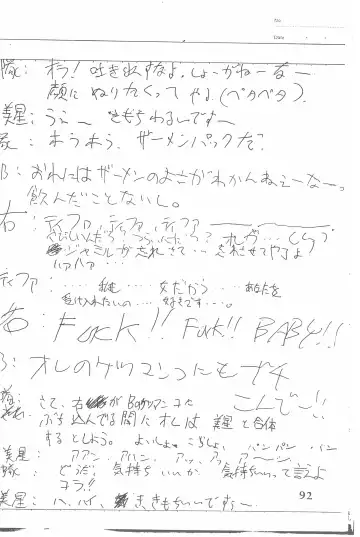 No.
Date
隊：オラ！吐き出すなよ。しょーがねーなー
顔にぬりたくってやる（ペタペタ）.
美星：うえ〜 きもちわるいです〜
隊：ホラホラ、ザーメンパックだ？
B：おれにはザーメンのよさがわかんねぇーなー。
飲んだことないし。
右：ティファ、ティファ、ティファ
オレが
が忘れさせてやるよ
ハァハァ…
ティファ：……私……女だから……あなたを
受け入れたいの……好きです…。
右：FUCK!! FUCK!! BABY!!
B：オレのケツマンコにもブチ
こんで〜!!
隊：さて、右がBのケツマンコに
ぶち込んでる間にオレは美星と合体
するとしよう。よいしょ、こらしょ、パンパンパン
美星：アアン、アハン、アッ、アッ、アーン
隊：どうだ、気持ちいいか 気持ちいいって言えよ
コラ!!
92
美星：ハ、ハイ、きもちいいですぅ〜